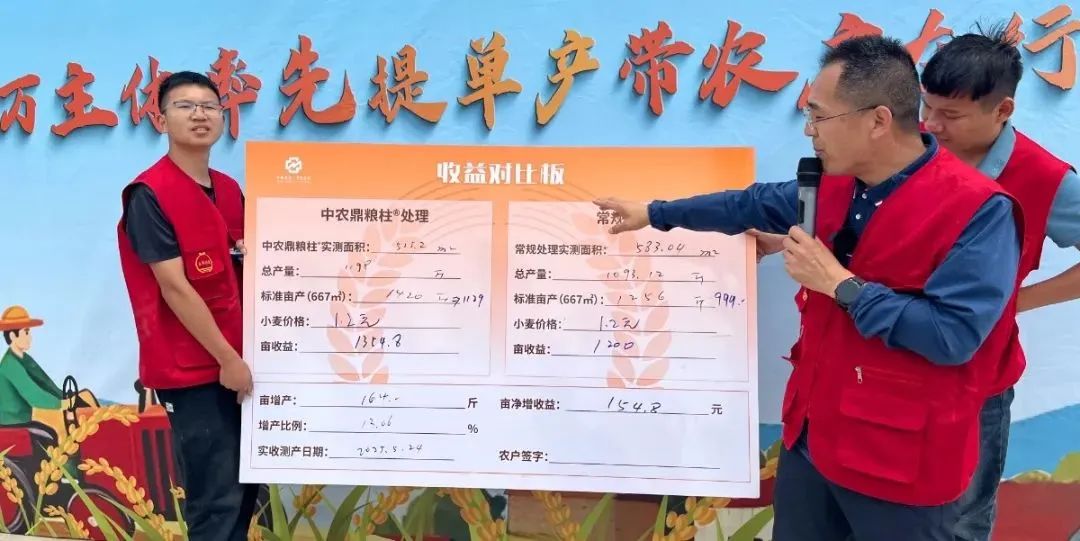 万主体率先提单产带农户
行
收益对比板
中农鼎粮柱®处理
中农鼎粮柱®实测面积: 515.2 m²
总产量: 1198 斤
标准亩产(667㎡): 1420 斤 1129
小麦价格: 1.2元
亩收益: 1354.8
常规
常规处理实测面积: 533.04 m²
总产量: 1093.12 斤
标准亩产(667㎡): 1256 斤 999.
小麦价格: 1.2元
亩收益: 1200
亩增产: 164. 斤
亩净增收益: 154.8 元
增产比例: 13.06 %
实收测产日期: 2025.5.24
农户签字: